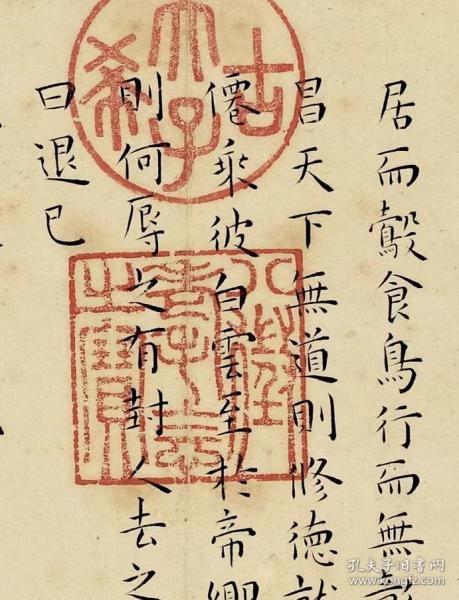 居而鷇食鳥行而無彰
昌天下無道則修德就
僊乘彼白雲至於帝鄉
則何辱之有封人去之
曰退已
古希天子
八徵耄念之寶
孔夫子旧书网
www.kongfz.com